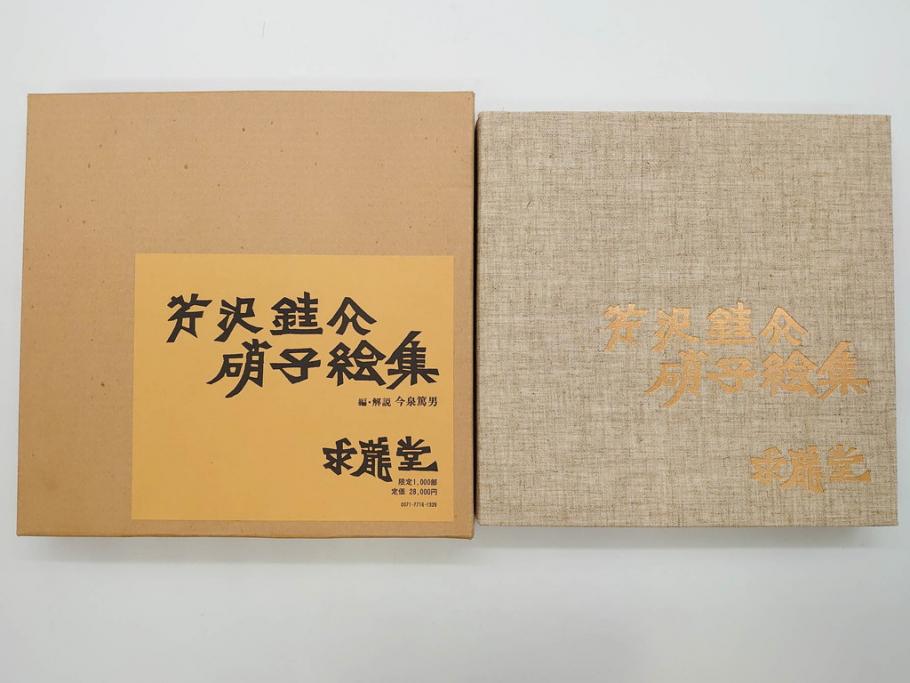 芹沢銈介
硝子絵集
編・解説 今泉篤男
求龍堂
限定1,000部
定価 28,000円
0071-7716-1339
芹沢銈介
硝子絵集
求龍堂